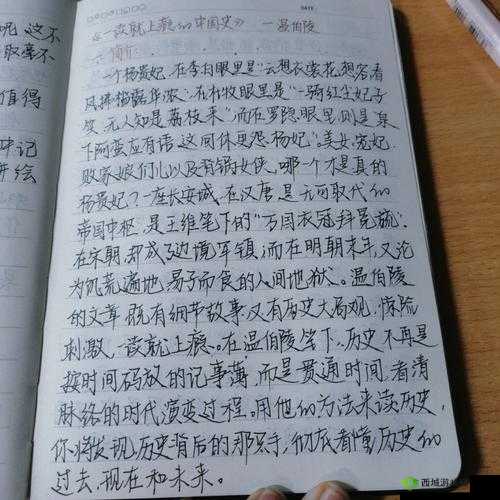 DATE
《一读就上瘾的中国史》 一温伯陵
一. 简介
一个杨贵妃，在李白眼里是“云想衣裳花想容，春
风拂槛露华浓”，在杜牧眼里是“一骑红尘妃子
笑，无人知是荔枝来”，而在罗隐眼里，则是“泉
下阿蛮应有语，这回休更怨杨妃”。美女、宠妃、
败家娘们儿以及背锅女侠，哪一个才是真的
杨贵妃？一座长安城，在汉唐是无可取代的
帝国中枢，是王维笔下的“万国衣冠拜冕旒”，
在宋朝，却成了边境军镇，而在明朝末年，又沦
为饥荒遍地、易子而食的人间地狱。温伯陵
的文章，既有细节故事，又有历史大局观，惊险
刺激，一读就上瘾。在温伯陵笔下，历史不再是
按时间码放的记事薄，而是贯通时间，看清
脉络的时代演变过程。用他的方法来读历史，
你将发现历史背后的那只手，彻底看懂历史的
过去、现在和未来。
值得
西域游